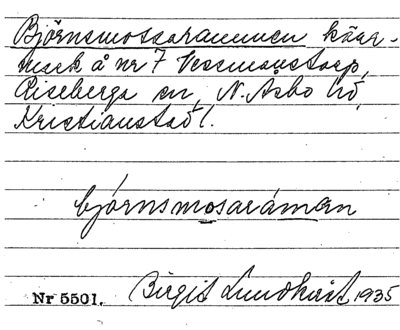 Björnsmossarammen kärr-
mark å nr 7 Vessmanstorp,
Riseberga sn, N. Åsbo hd,
Kristianstad l.
björnsmosaráman
Nr 5501. Birgit Lundkvist 1935